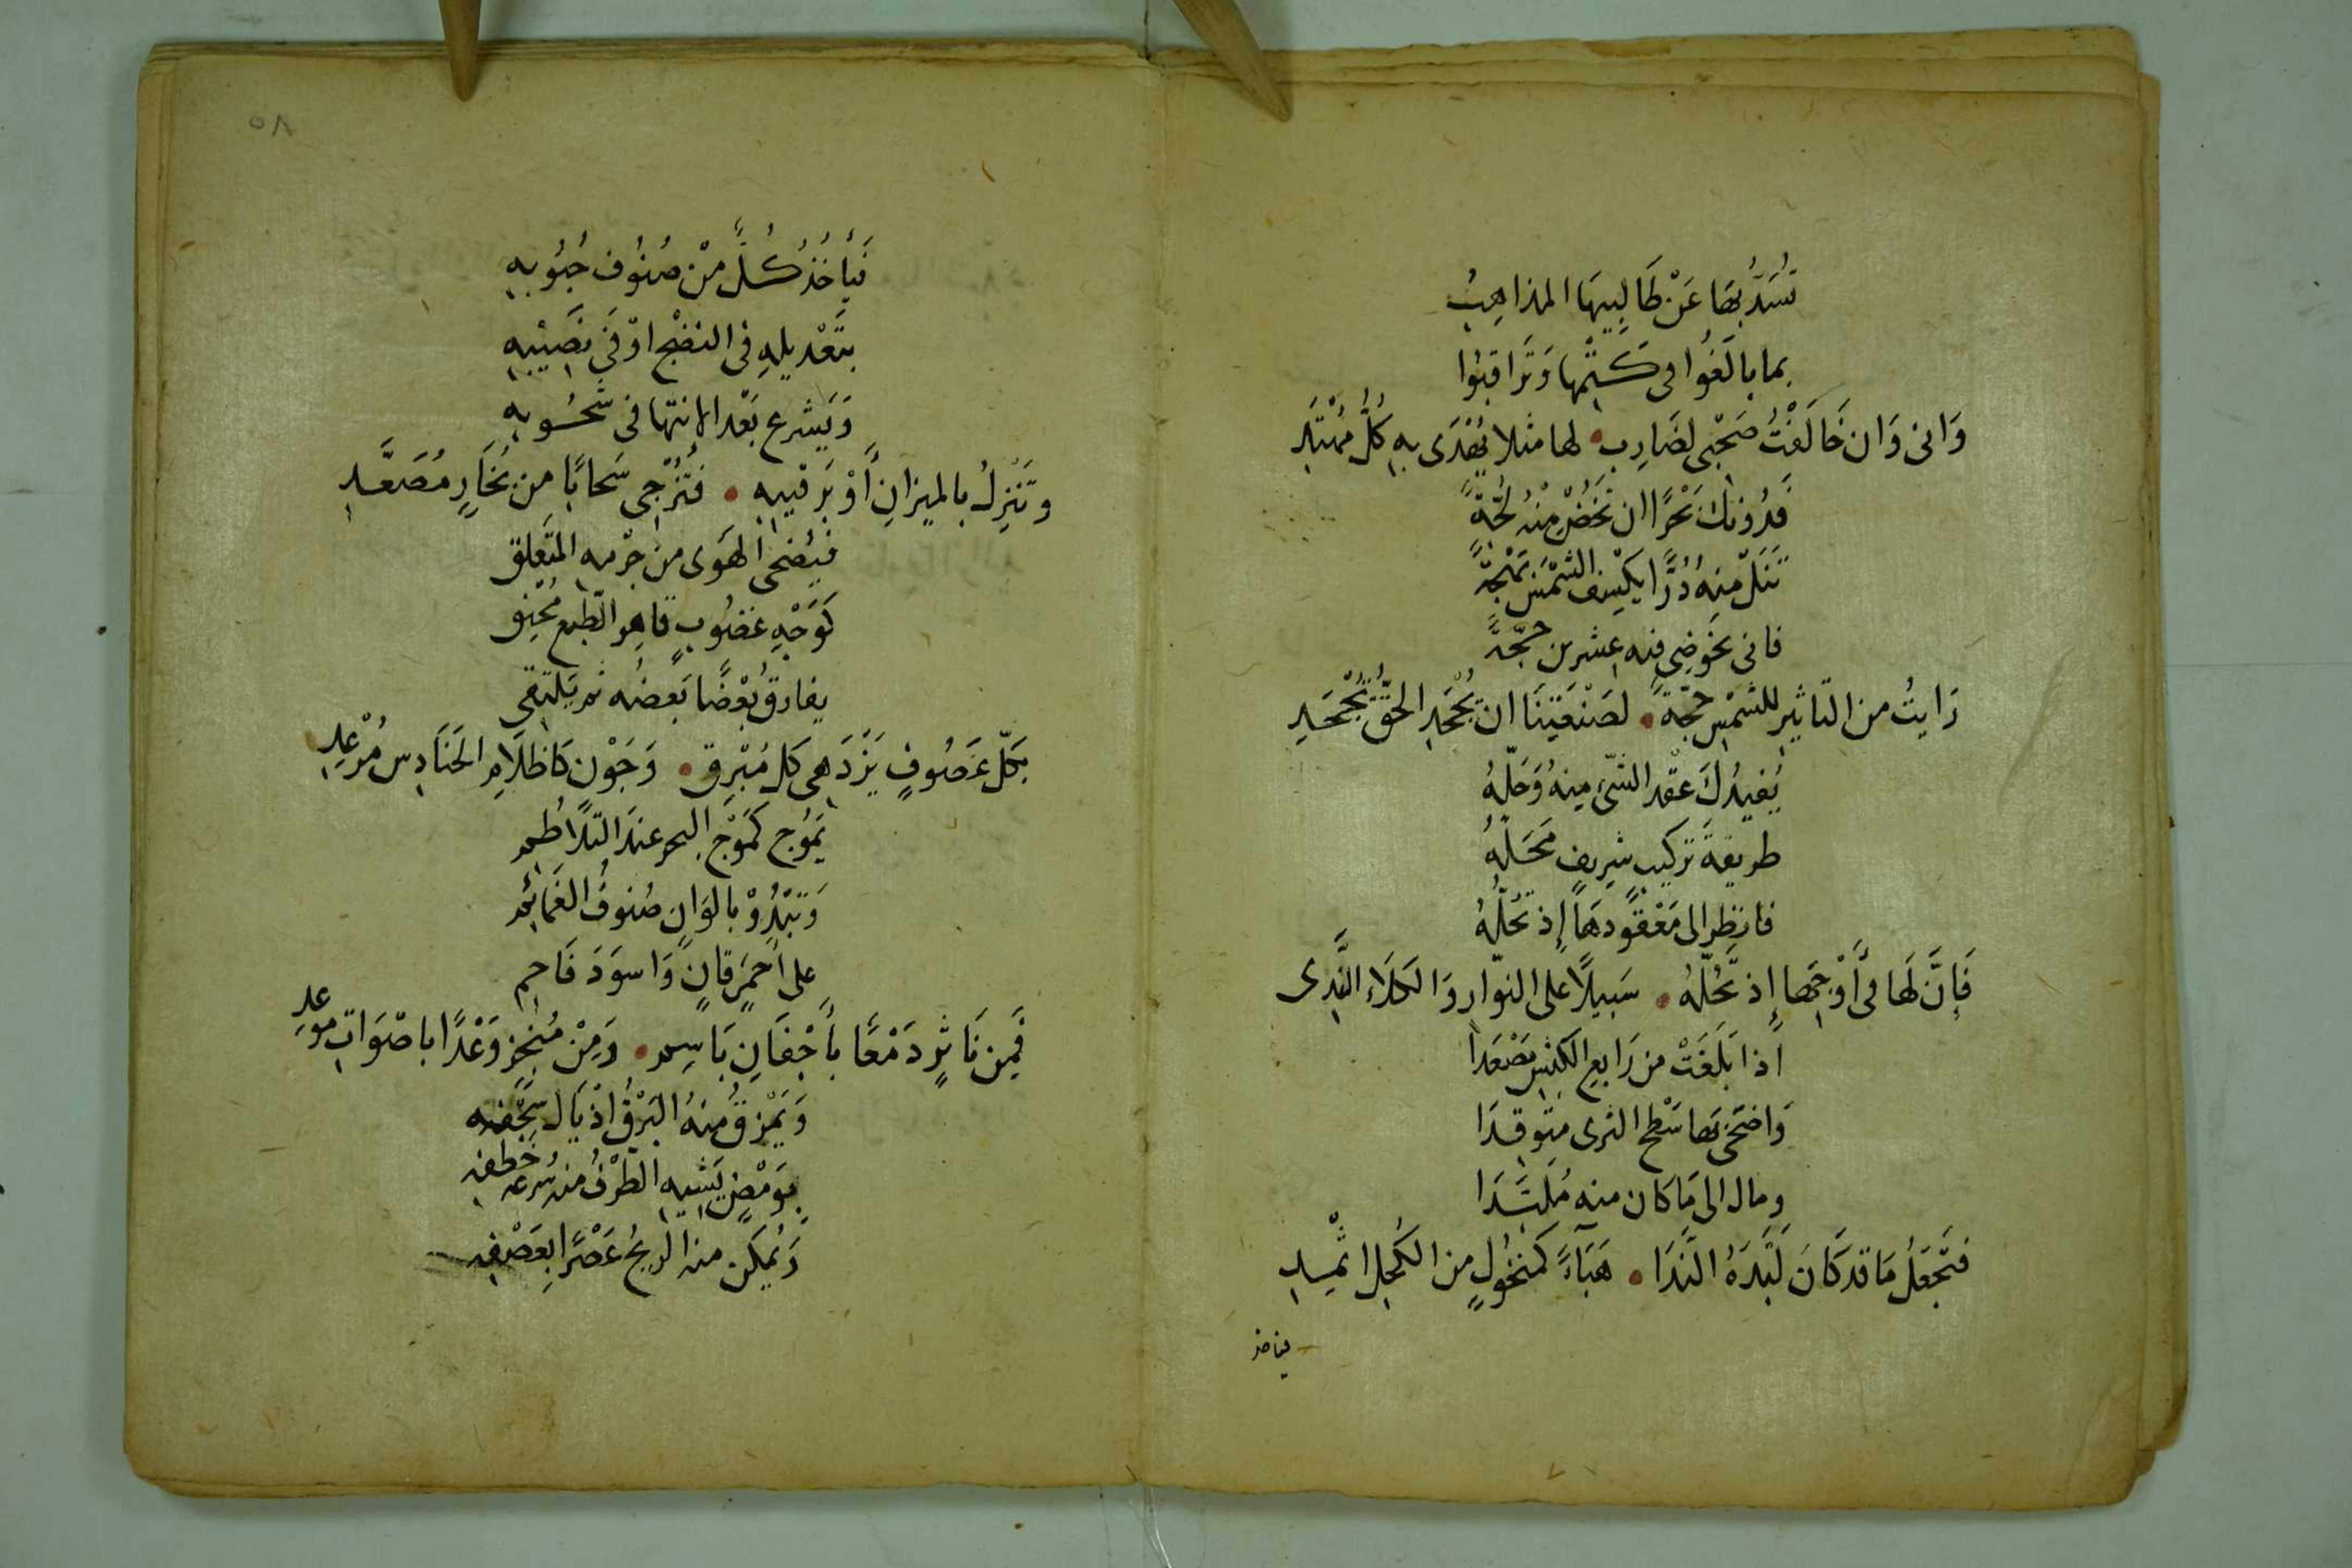 تُسَدُّ بِهَا عَنْ طَالِبِيهَا المذاهِبُ
بما بالَغُوا فى كَتْمِها وَتَرَاقَبُوا
وَانى وَان خَالَفْتُ صَحْبِى لضَارِبٌ • لها مثلا يُهْدَى بِهِ كُلُّ مُهْتَدِ
فَدُونكَ بَحْرًا ان تَخُضْ مِنْهُ لُجَّةً
تَنَلْ مِنهُ دُرًّا يَكْسِف الشَّمْسَ بَهْجَةً
فانى بخَوضِى فيه عشرين حِجَّةً
رَايتُ من التاثير للشمْسِ حجّةً • لصَنْعَتِنَا ان يُجْحَدِ الحَقُّ تُجْحَدِ
يُفيدُكَ عَقْد الشّىء مِنهُ وَحَلّهُ
طريقةَ تركيب شريفٍ مَحَلّهُ
فانظر الى مَعْقُودهَا إذ تحُلّهُ
فَإنَّ لَهَا فى أَوْجِهَا إذ تَحُلّهُ • سَبِيلًا على النوّار وَالكَلَاءِ النَّدِى
اذا بَلَغَتْ من رَابع الكبشِ مَصْعَدا
وَاضحَى بها سَطْح الثرى متوقدَا
ومال الى مَا كان منه مُلَبَّدَا
فتَجعَلُ مَا قد كَانَ لَبَّدَهُ النَّدَا • هَبَآءً كمَنخُولٍ من الكُحل اثمِدِ
فياخذ
٥٨
فَيَأخُذُ كُلٌّ مِنْ صُنُوفِ حُبُوبِهِ
بتَعْديلهِ فى النضْج اوْفَى نَصِيْبِهِ
وَيَشرع بَعْد الانتها فى شُحُوبِهِ
وتَنْزِلُ بالميزانِ أَوْ بَرَقيبهِ • فتُزْجِى سَحابًا من بُخَارٍ مُصَعَّدِ
فيُضحى الهَوى من جِرْمهِ المتَعَلِق
كوَجْهِ غضُوبٍ قاهِرِ الطبع مُحْنِق
يفارق بَعْضًا بَعضُه ثم يَلتقى
بكلّ عَصُوفٍ يَزْدَهى كل مُبْرِق • وَجَوْن كاظلَامِ الحَنَادِس مُرْعِدِ
يَمُوج كمَوْج البحر عندَ التلَاطُم
وَتَبْدُوْ بالوَانٍ صُنوفُ الغَمَائمِ
على أحمَرٍ قانٍ وَاسوَدَ فَاحِمِ
فَمِن نَاثرٍ دَمْعًا بأَجْفَانِ بَاسِم • وَمِنْ مُنجزٍ وَعْدًا باصْوَاتِ موعدِ
وَيَمْزقُ مِنهُ البَرْقُ اذْيَال سِجْفِه
بوَمْضٍ يَشبِه الطَرْفُ منه سُرعة خَطفِه
وَيُمكن منه الريحُ عَصْرًا بعَصْفِه